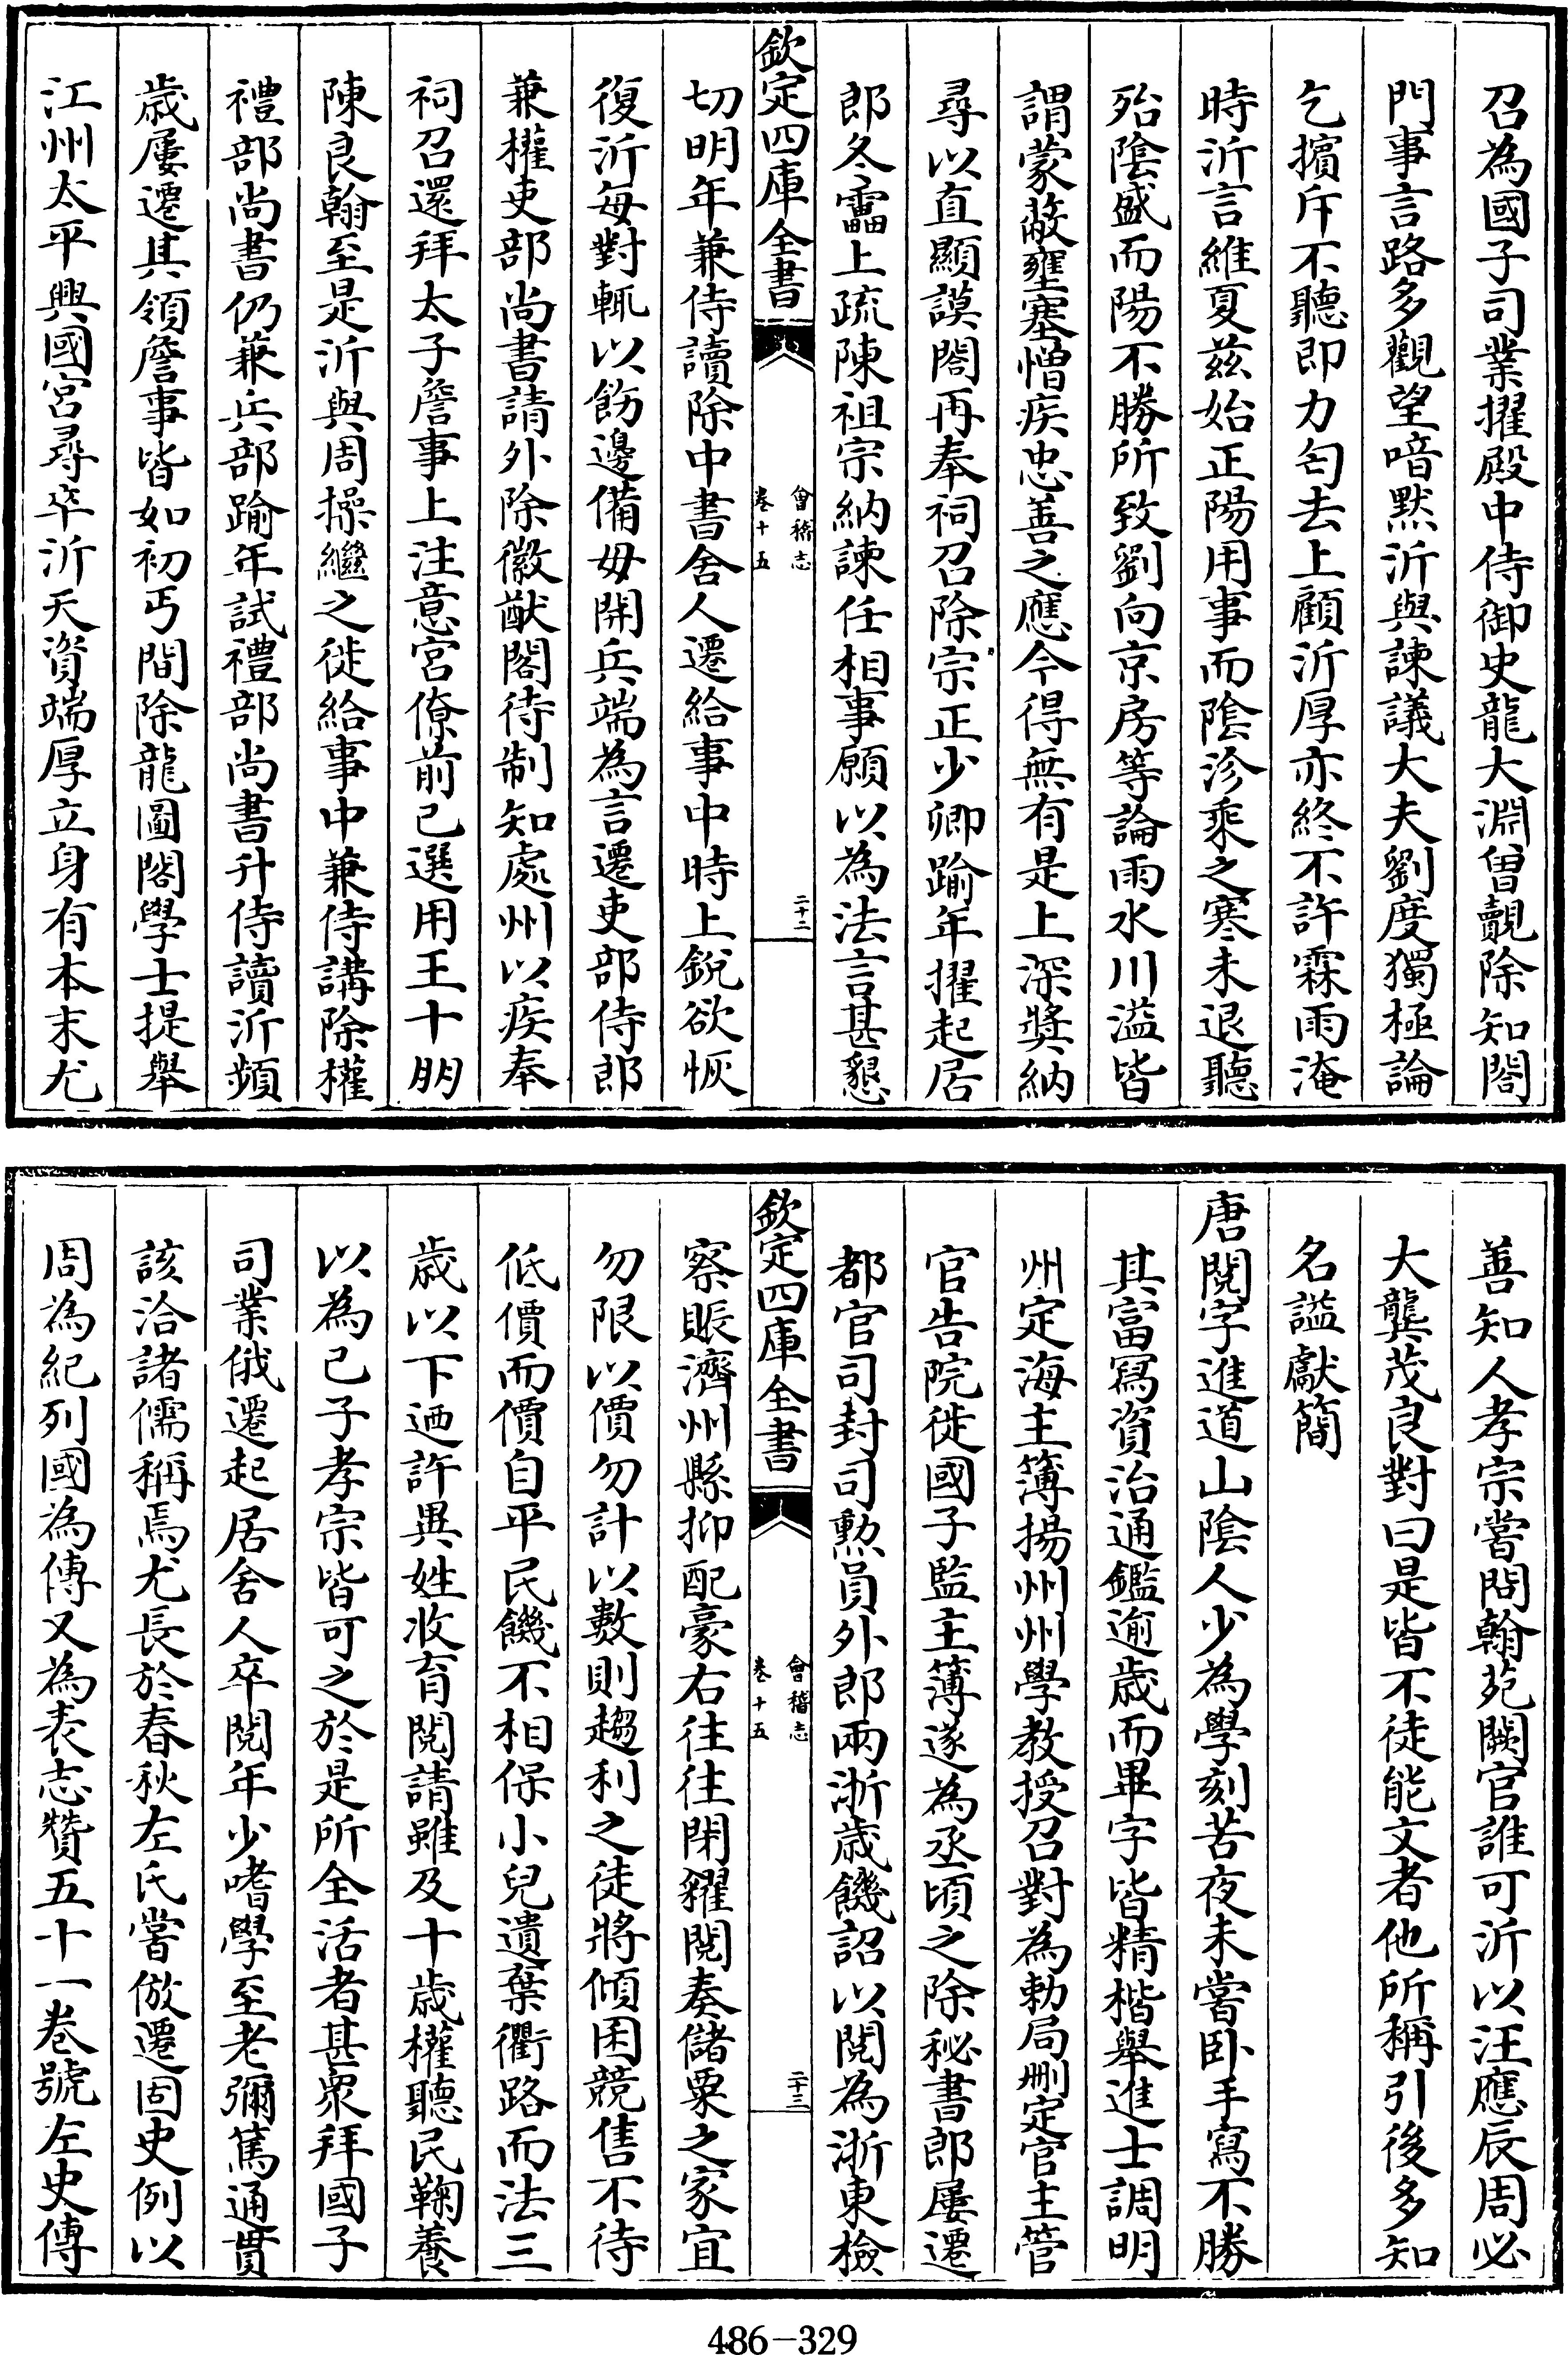 召為國子司業擢殿中侍御史龍大淵曽覿除知閤
門事言路多觀望喑黙沂與諫議大夫劉度獨極論
乞擯斥不聽即力匄去上顧沂厚亦終不許霖雨淹
時沂言維夏兹始正陽用事而隂沴乘之寒未退聽
殆隂盛而陽不勝所致劉向京房等論雨水川溢皆
謂蒙蔽壅塞憎疾忠善之應今得無有是上深奬納
尋以直顯謨閣再奉祠召除宗正少卿踰年擢起居
郎冬靁上疏陳祖宗納諫任相事願以為法言甚懇
欽定四庫全書
會稽志
卷十五
二十二
切明年兼侍讀除中書舍人遷給事中時上鋭欲恢
復沂每對輒以飭邊備毋開兵端為言遷吏部侍郎
兼權吏部尚書請外除徽猷閣待制知處州以疾奉
祠召還拜太子詹事上注意宫僚前已選用王十朋
陳良翰至是沂與周操繼之徙給事中兼侍講除權
禮部尚書仍兼兵部踰年試禮部尚書升侍讀沂頻
歳屢遷其領詹事皆如初丐間除龍圖閣學士提舉
江州太平興國宫尋卒沂天資端厚立身有本末尤
善知人孝宗嘗問翰苑闕官誰可沂以汪應辰周必
大龔茂良對曰是皆不徒能文者他所稱引後多知
名謚獻簡
唐閱字進道山隂人少為學刻苦夜未嘗卧手寫不勝
其富寫資治通鑑逾歳而畢字皆精楷舉進士調明
州定海主簿揚州州學教授召對為勅局刪定官主管
官告院徙國子監主簿遂為丞頃之除秘書郎屢遷
都官司封司勲員外郎兩浙歳饑詔以閱為浙東檢
欽定四庫全書
會稽志
卷十五
二十三
察賑濟州縣抑配豪右往往閉糴閱奏儲粟之家宜
勿限以價勿計以數則趨利之徒將傾囷競售不待
低價而價自平民饑不相保小兒遺棄衢路而法三
歳以下廼許異姓收育閱請雖及十歳權聽民鞠養
以為已子孝宗皆可之於是所全活者甚衆拜國子
司業俄遷起居舍人卒閱年少嗜學至老彌篤通貫
該洽諸儒稱焉尤長於春秋左氏嘗倣遷固史例以
周為紀列國為傳又為表志贊五十一卷號左史傳
486-329